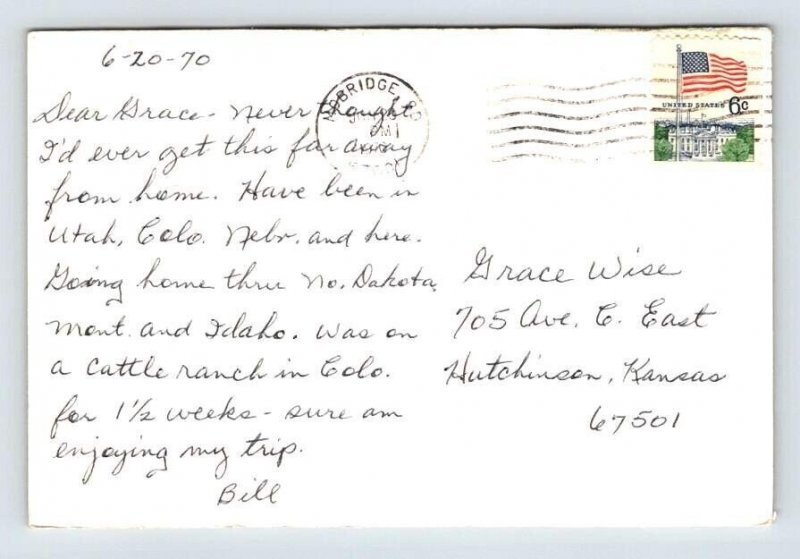 6-20-70
Dear Grace - Never thought
I'd ever get this far away
from home. Have been in
Utah, Colo. Nebr. and here.
Going home thru No. Dakota
Mont. and Idaho. Was on
a cattle ranch in Colo.
for 1½ weeks - sure am
enjoying my trip.
Bill
MOBRIDGE,
PM
UNITED STATES 6c
Grace Wise
705 Ave. C. East
Hutchinson, Kansas
67501